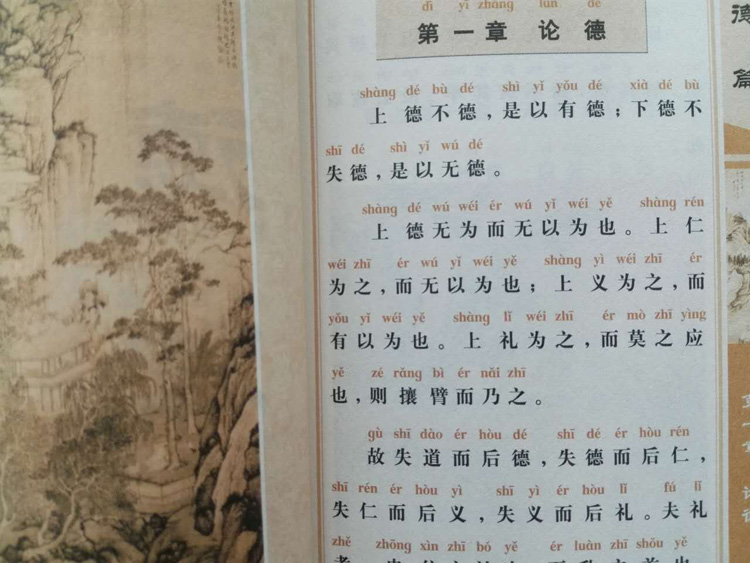 dì yī zhāng lùn dé
第一章 论德
shàng dé bù dé shì yǐ yǒu dé xià dé bù
上德不德，是以有德；下德不
shī dé shì yǐ wú dé
失德，是以无德。
shàng dé wú wéi ér wú yǐ wéi yě shàng rén
上德无为而无以为也。上仁
wéi zhī ér wú yǐ wéi yě shàng yì wéi zhī ér
为之，而无以为也；上义为之，而
yǒu yǐ wéi yě shàng lǐ wéi zhī ér mò zhī yìng
有以为也。上礼为之，而莫之应
yě zé rǎng bì ér nǎi zhī
也，则攘臂而乃之。
gù shī dào ér hòu dé shī dé ér hòu rén
故失道而后德，失德而后仁，
shī rén ér hòu yì shī yì ér hòu lǐ fú lǐ
失仁而后义，失义而后礼。夫礼
zhě zhōng xìn zhī bó yě ér luàn zhī shǒu yě
德
篇